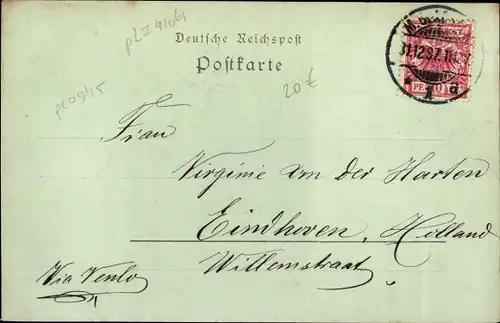 Deutsche Reichspost
Postkarte
20 €
31.12.97.
* 1 a
Frau
Virginie van der Harten
Eindhoven, Holland
Willemstraat
Via Venlo